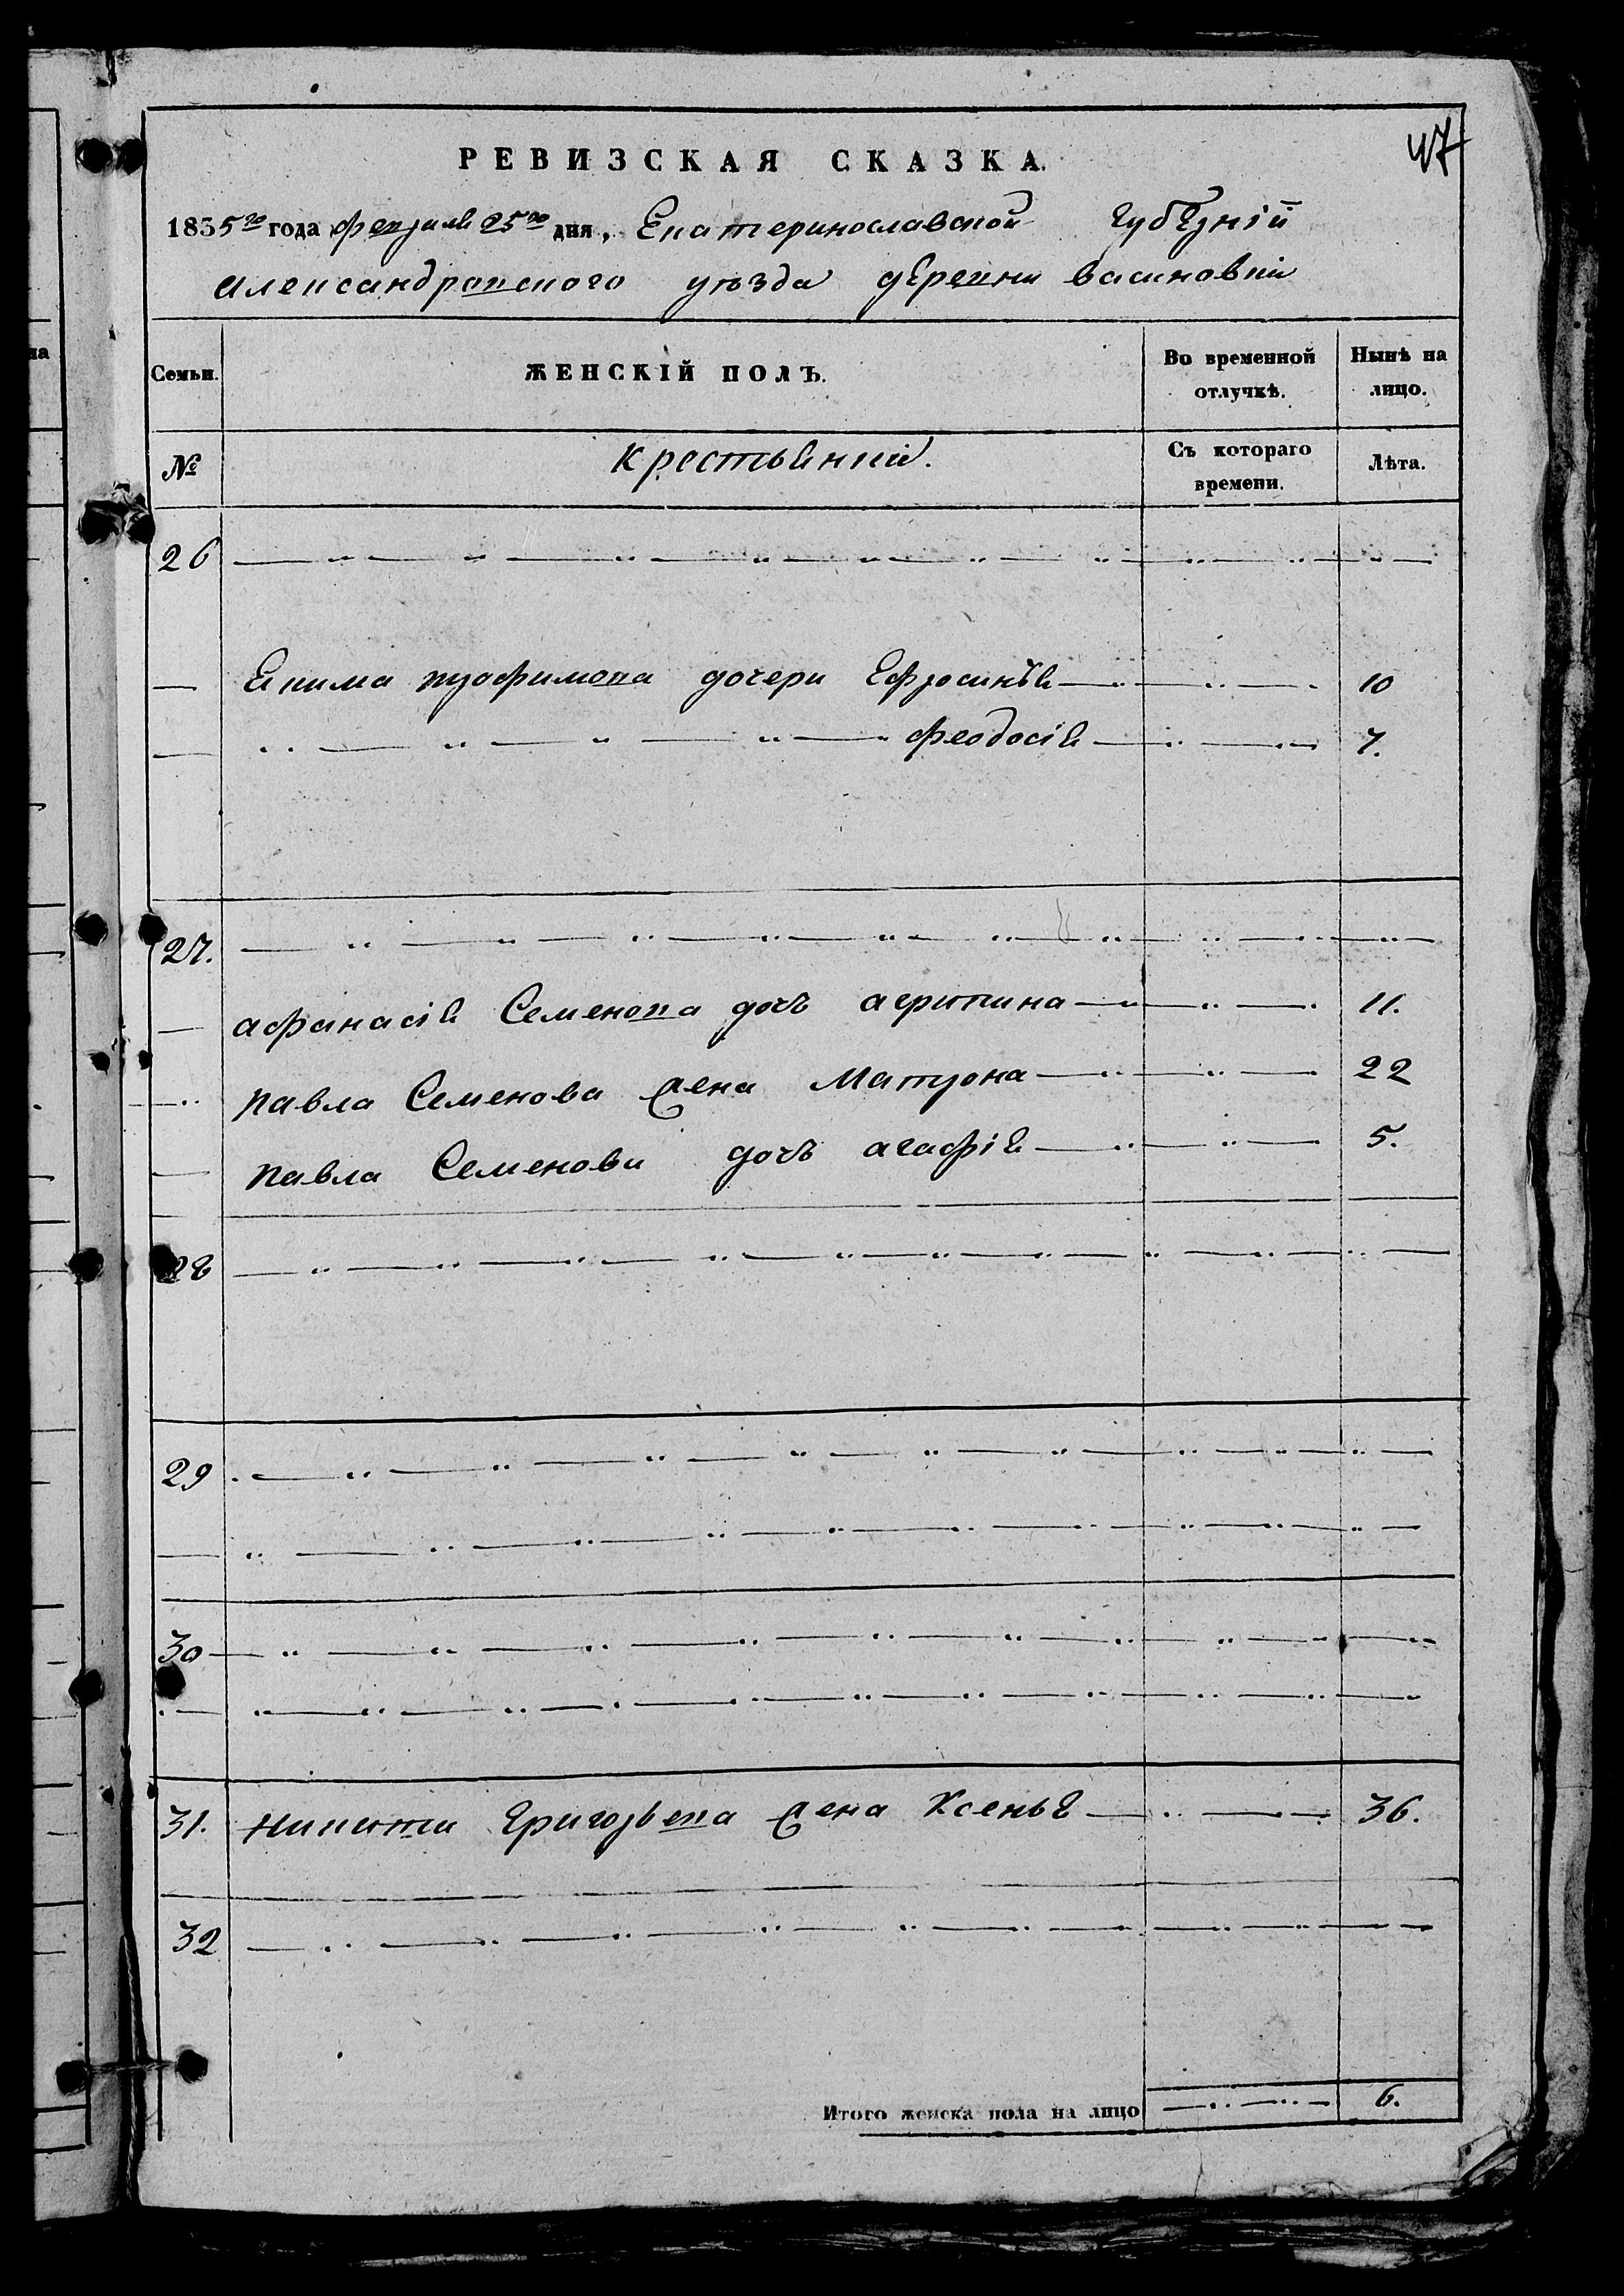 47
РЕВИЗСКАЯ СКАЗКА.
1835го года февраля 25го дня, Екатеринославской губернiй
александровскаго уѣзда деревни васиновки
Семьи. ЖЕНСКІЙ ПОЛЪ. Во временной отлучкѣ. Нынѣ на лицо.
№ крестьянки. Съ котораго времени. Лѣта.
26
Якима трофимова дочери Ефросинья 10
феодосiя 7.
27.
афанасiя Семенова дочь агрипина 11.
павла Семенова жена Матрона 22
павла Семенова дочь агафiя 5.
28
29
30
31. никиты Григорьева жена Ксенья 36.
32
Итого женска пола на лицо 6.